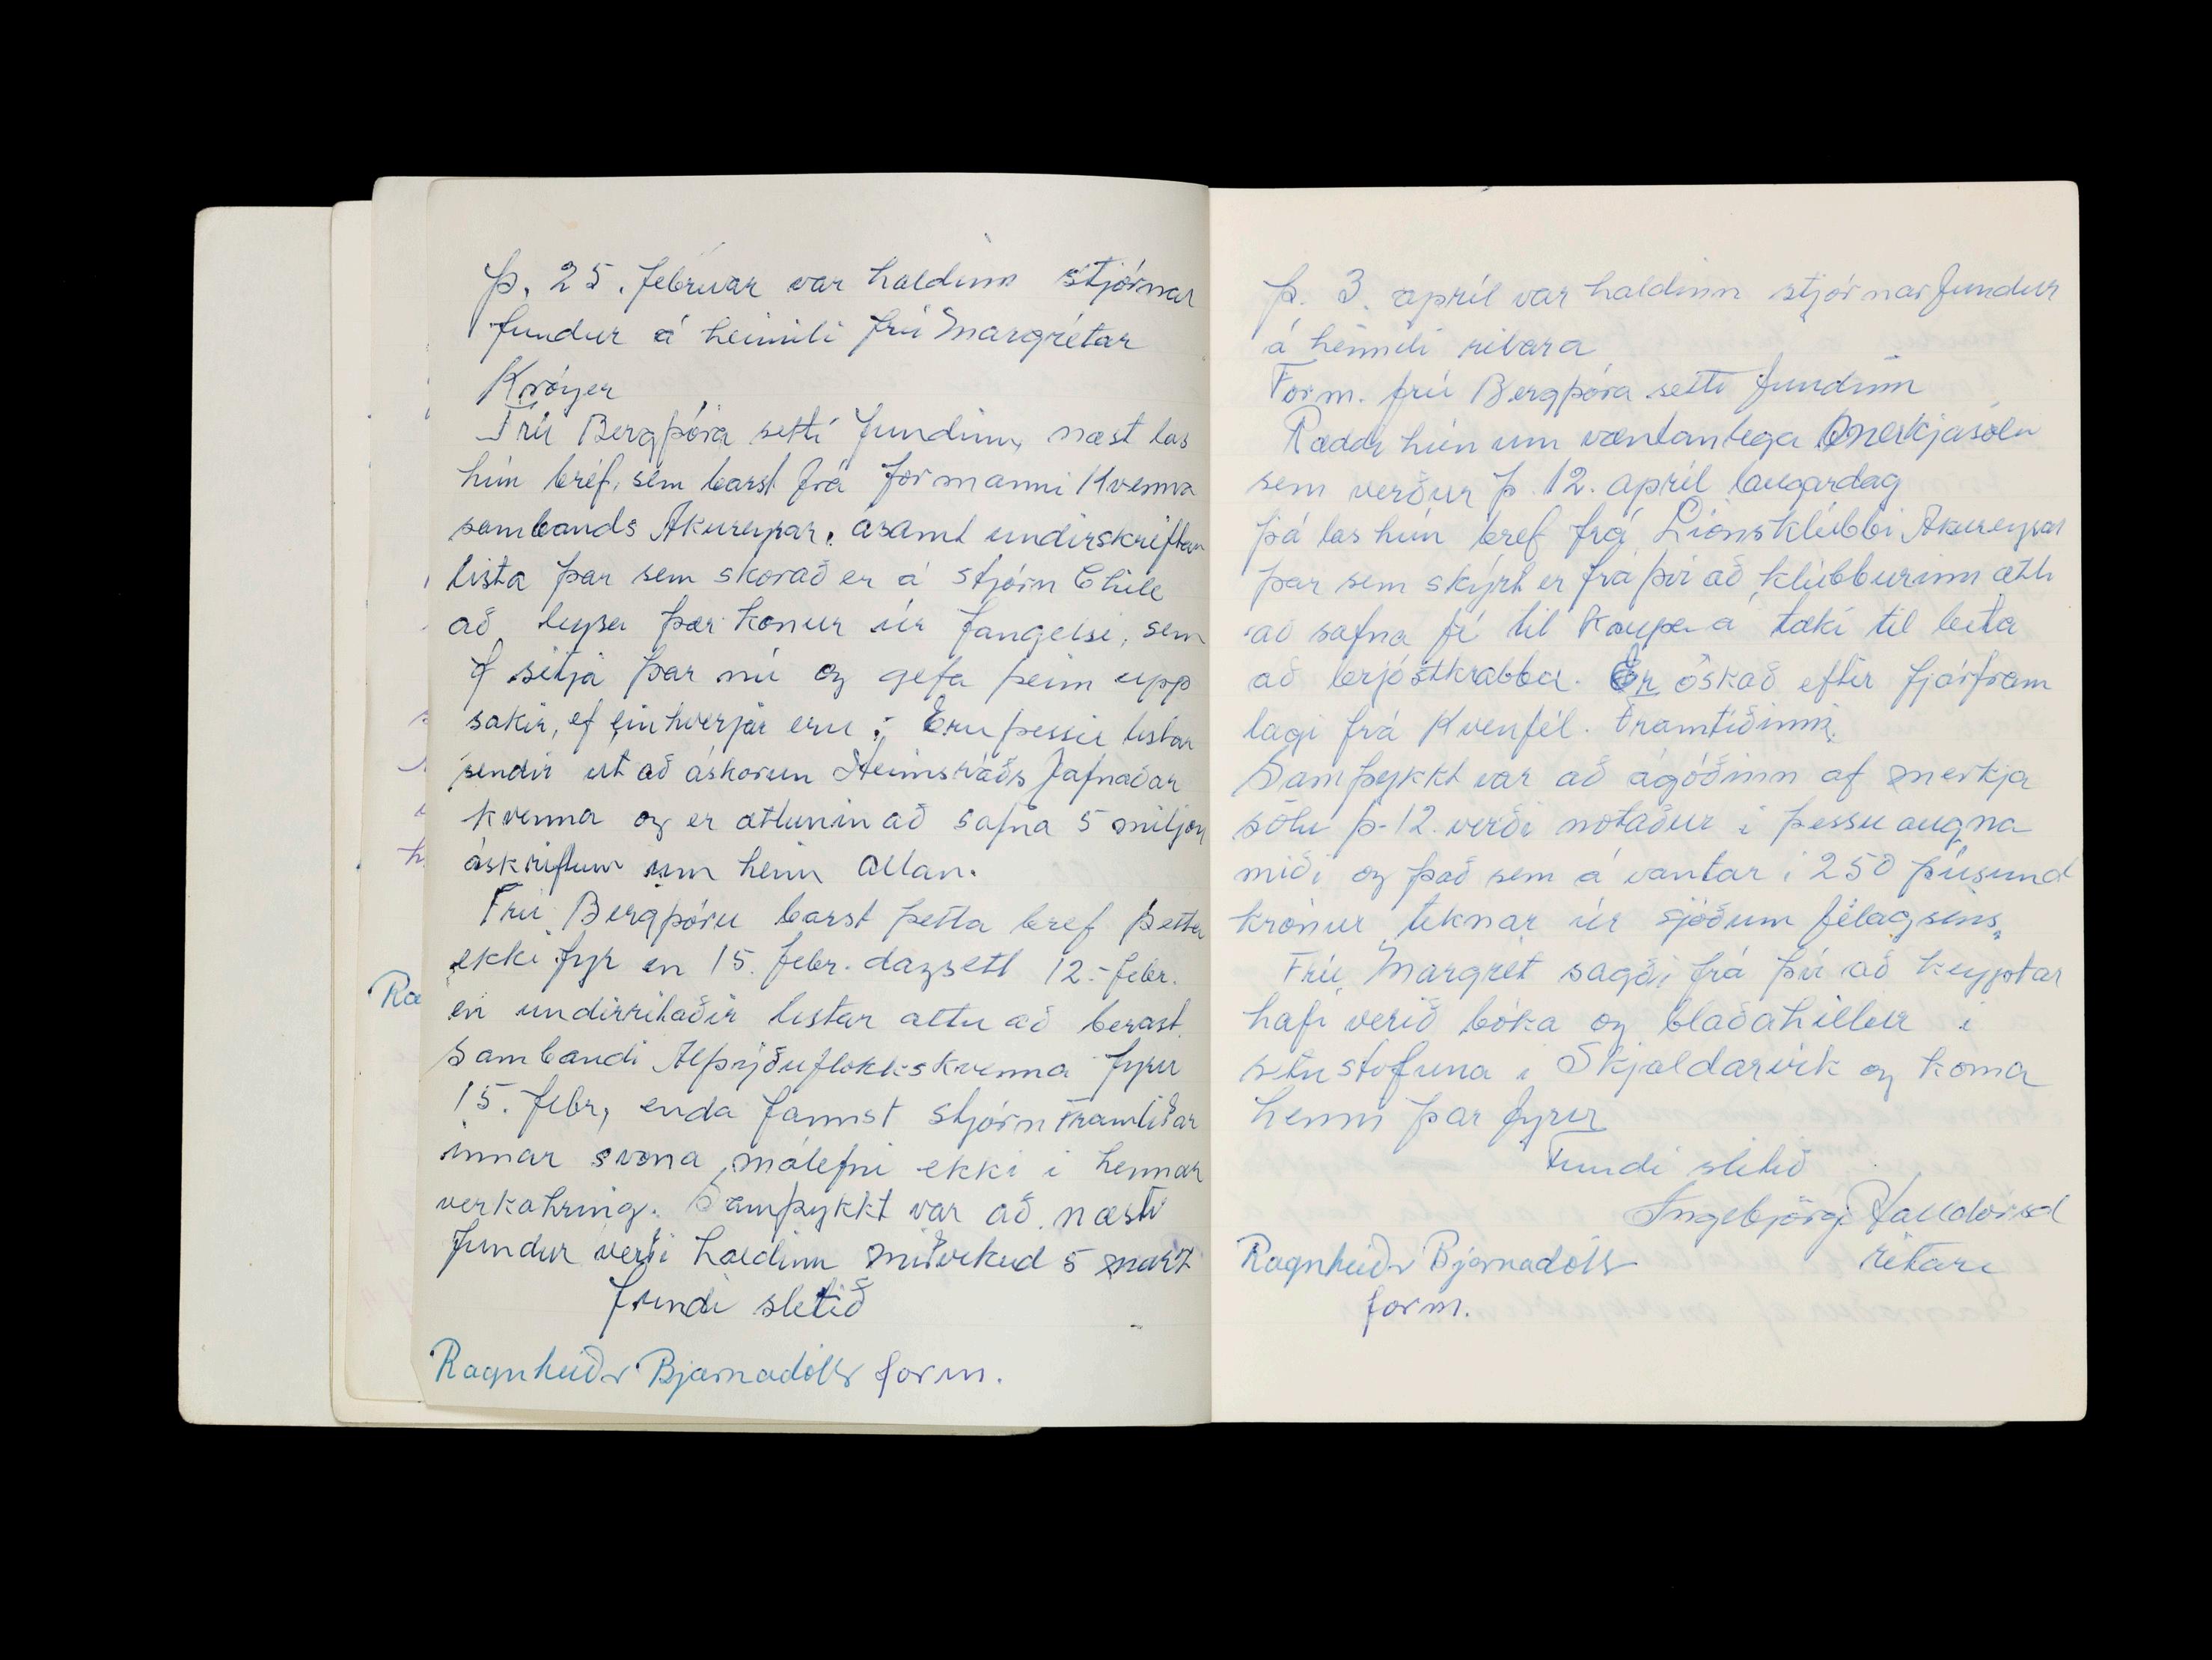 þ. 25. februar var haldinn stjórnar
fundur á heimili frú Margrétar
Krøyer
Frú Bergþóra setti fundinn, næst las
hún bréf, sem barst frá formanni Kvenna
sambands Akureyrar, ásamt undirskriftar
lista þar sem skorað er á stjórn Chile
að leysa þær konur úr fangelsi, sem
sitja þar nú og gefa þeim upp
sakir, ef einhverjar eru. Eru þessir listar
sendir út að áskorun Heimsráðs Jafnaðar
kvenna og er ætlunin að safna 5 miljón
áskriftum um heim allan.
Frú Bergþóru barst þetta bref þetta
ekki fyr en 15. febr. dagsett 12.-febr.
en undirritaðir listar áttu að berast
Sambandi Alþýðuflokkskvenna fyrir
15. febr, enda fannst stjórn Framtíðar
innar svona málefni ekki í hennar
verkahring. Samþykkt var að næsti
fundur verði haldinn miðvikud 5 marz
fundi slitið
Ragnheiður Bjarnadóttir form.
Ra
þ. 3. apríl var haldinn stjórnarfundur
á heimili ritara
Form. frú Bergþóra setti fundinn
Ræddi hún um væntanlega merkjasölu
sem verður þ. 12. apríl laugardag
þá las hún bref frá Lionsklúbbi Akureyrar
þar sem skýrt er frá því að klúbburinn ætli
að safna fé til kaupa á tæki til leita
að brjóstkrabba. Er óskað eftir fjárfram
lagi frá Kvenfél. Framtíðinni.
Samþykkt var að ágóðinn af merkja
sölu þ-12. verði notaður í þessu augna
miði og það sem á vantar í 250 þúsund
krónur teknar úr sjóðum félagsins.
Frú Margrét sagði frá því að keyptar
hafi verið bóka og blaðahillur í
setustofuna í Skjaldarvík og koma
henni þar fyrir
Fundi slitið
Ingebjörg Halldórsd
ritari
Ragnheiður Bjarnadóttir
form.